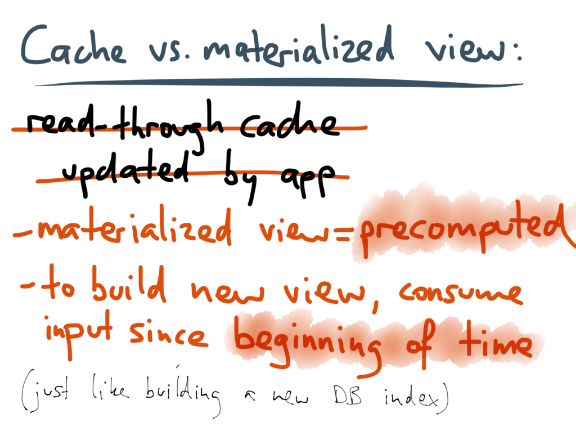 Cache vs. materialized view:
read-through cache
updated by app
- materialized view = precomputed
- to build new view, consume
input since beginning of time
(just like building a new DB index)